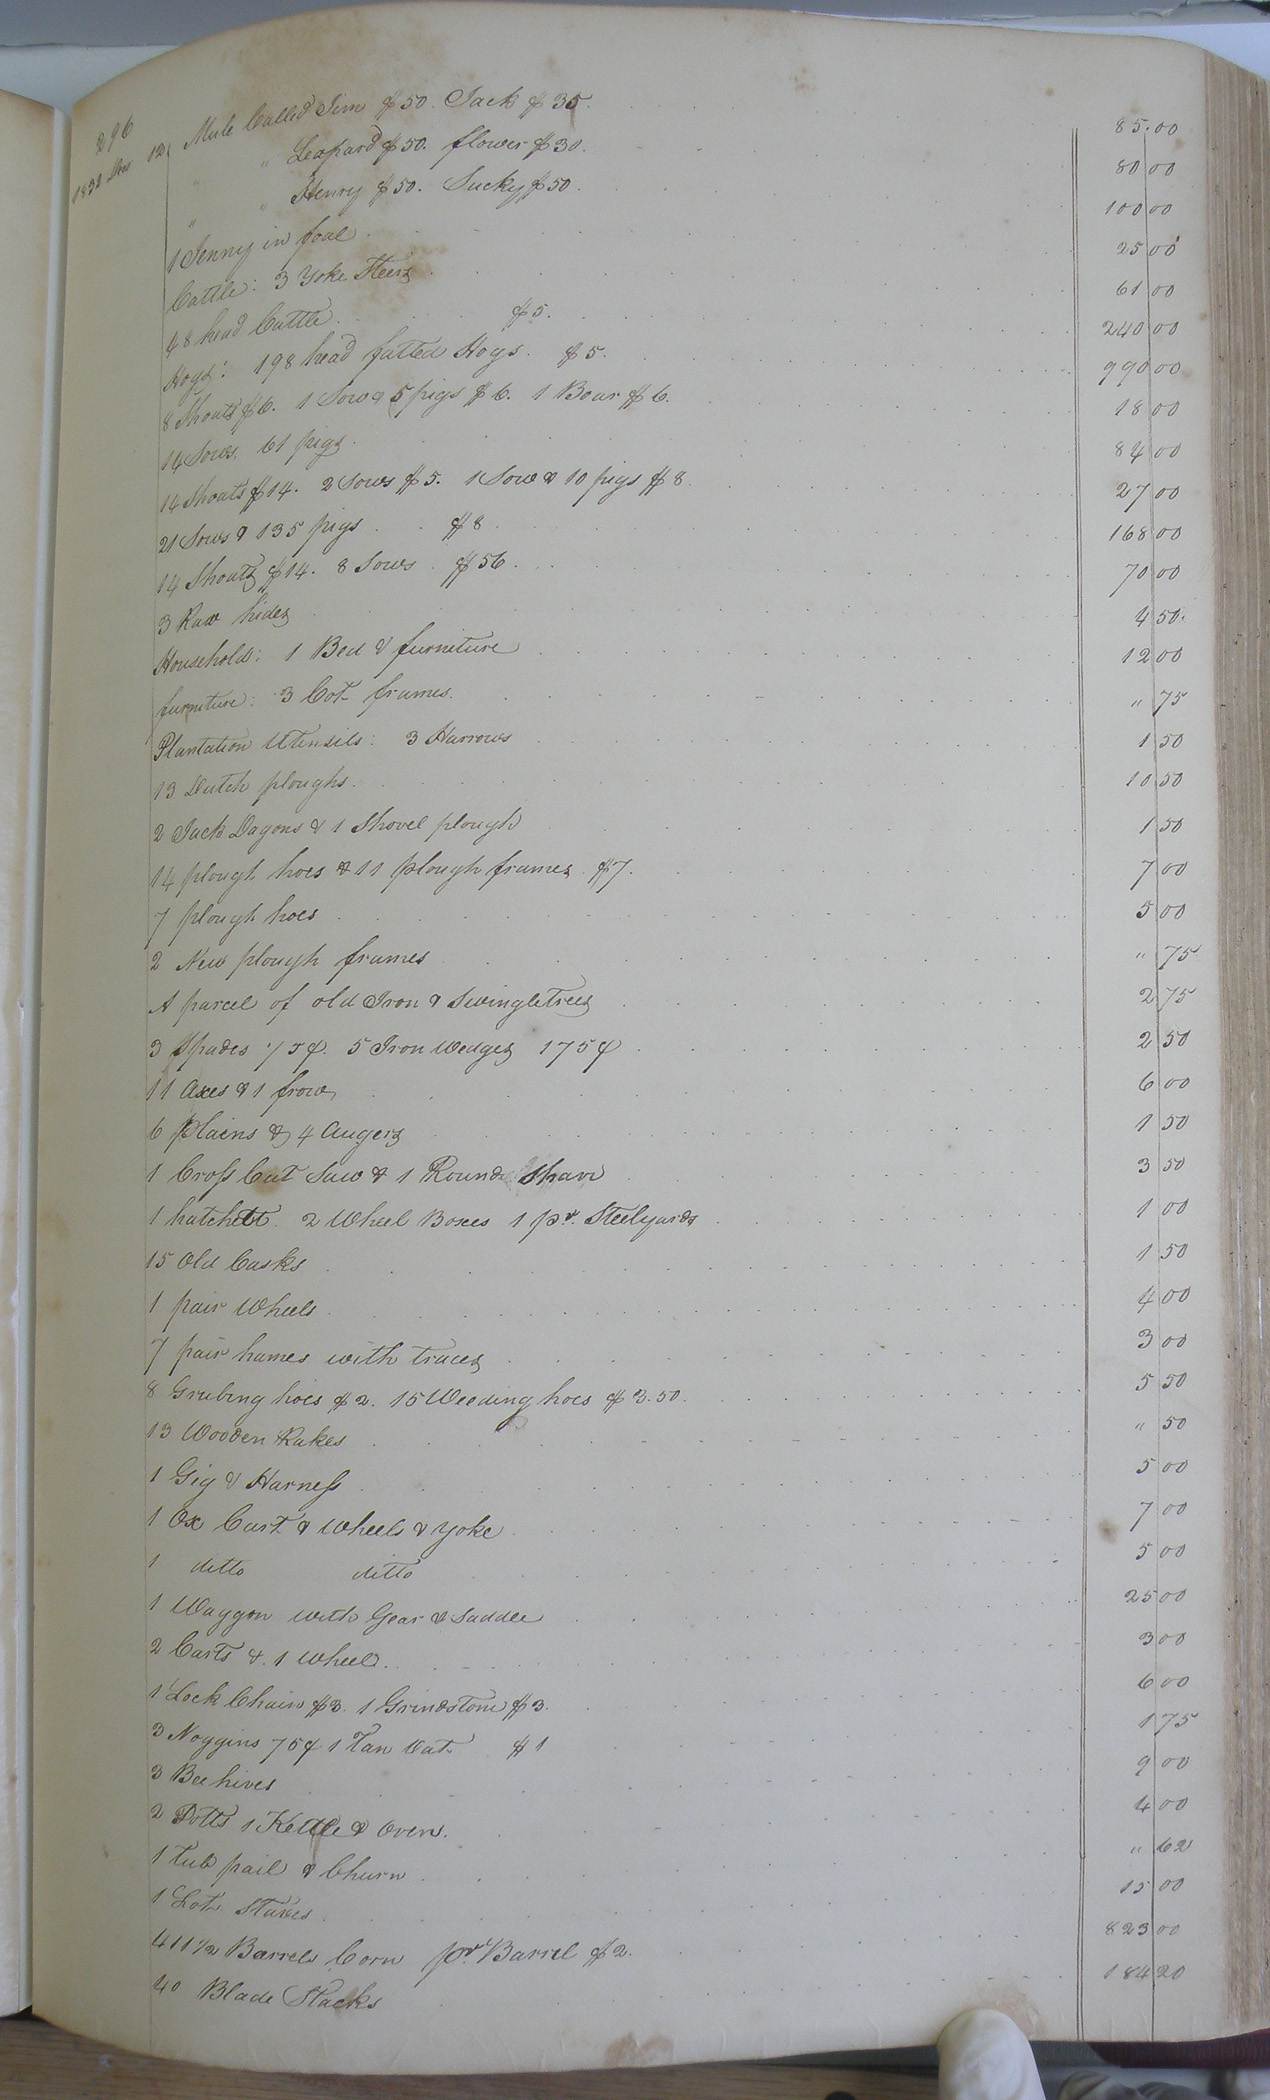 296
1832 Dec 12 Mule Called Jim $50. Jack $35. 85.00
" " Leopard $50. flower $30. 80 00
" " Henry $50. Sucky $50. 100 00
1 Jenny in foal 25 00
Cattle: 3 Yoke Steers 61 00
48 head Cattle $5. 240 00
Hogs: 198 head fatted Hogs. $5. 990 00
8 Shoats $6. 1 Sow & 5 pigs $6. 1 Boar $6. 18 00
14 Sows. 61 pigs. 84 00
14 Shoats $14. 2 Sows $5. 1 Sow & 10 pigs $8. 27 00
21 Sows & 135 pigs $8. 168 00
14 Shoats $14. 8 Sows $56. 70 00
3 Raw hides 4 50.
Household: 1 Bed & furneture 12 00
furneture: 3 Cot frames. " 75
Plantation Utensils: 3 Harrows 1 50
13 Dutch ploughs. 10 50
2 Jack Dagons & 1 Shovel plough 1 50
14 plough hoes & 11 plough frames $7. 7 00
7 plough hoes 5 00
2 New plough frames " 75
A parcel of old Iron & Swingletrees 2 75
3 Spades 75¢. 5 Iron Wedges 175¢ 2 50
11 Axes & 1 frow 6 00
6 Plains & 4 Augers 1 50
1 Cross Cut Saw & 1 Round Shave 3 50
1 hatchett. 2 Wheel Boxes 1 pr. Steelyards 1 00
15 Old Casks 1 50
1 pair Wheels 4 00
7 pair hames with traces 3 00
8 Grubing hoes $2. 15 Weeding hoes $3.50. 5 50
13 Wooden Rakes " 50
1 Gig & Harness 5 00
1 Ox Cart & Wheels & Yoke 7 00
1 ditto ditto 5 00
1 Waggon with Gear & Saddle 25 00
2 Carts & 1 Wheel. 3 00
1 Lock Chain $3. 1 Grindstone $3. 6 00
3 Noggins 75¢ 1 Tan Vat $1 1 75
3 Bee hives 9 00
2 Potts 1 Kettle & Oven. 4 00
1 Tub pail & Churn " 62
1 Lot Staves 15 00
411 1/2 Barrels Corn pr. Barrel $2. 823 00
40 Blade Stacks 184 20